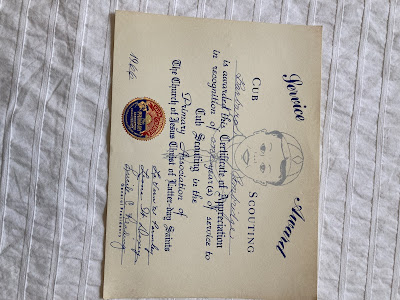 Service Award
CUB SCOUTING
Barbara
is awarded this Certificate of Appreciation
in recognition of one year(s) of service to
Cub Scouting in the
Primary Association of
The Church of Jesus Christ of Latter-day Saints
1966